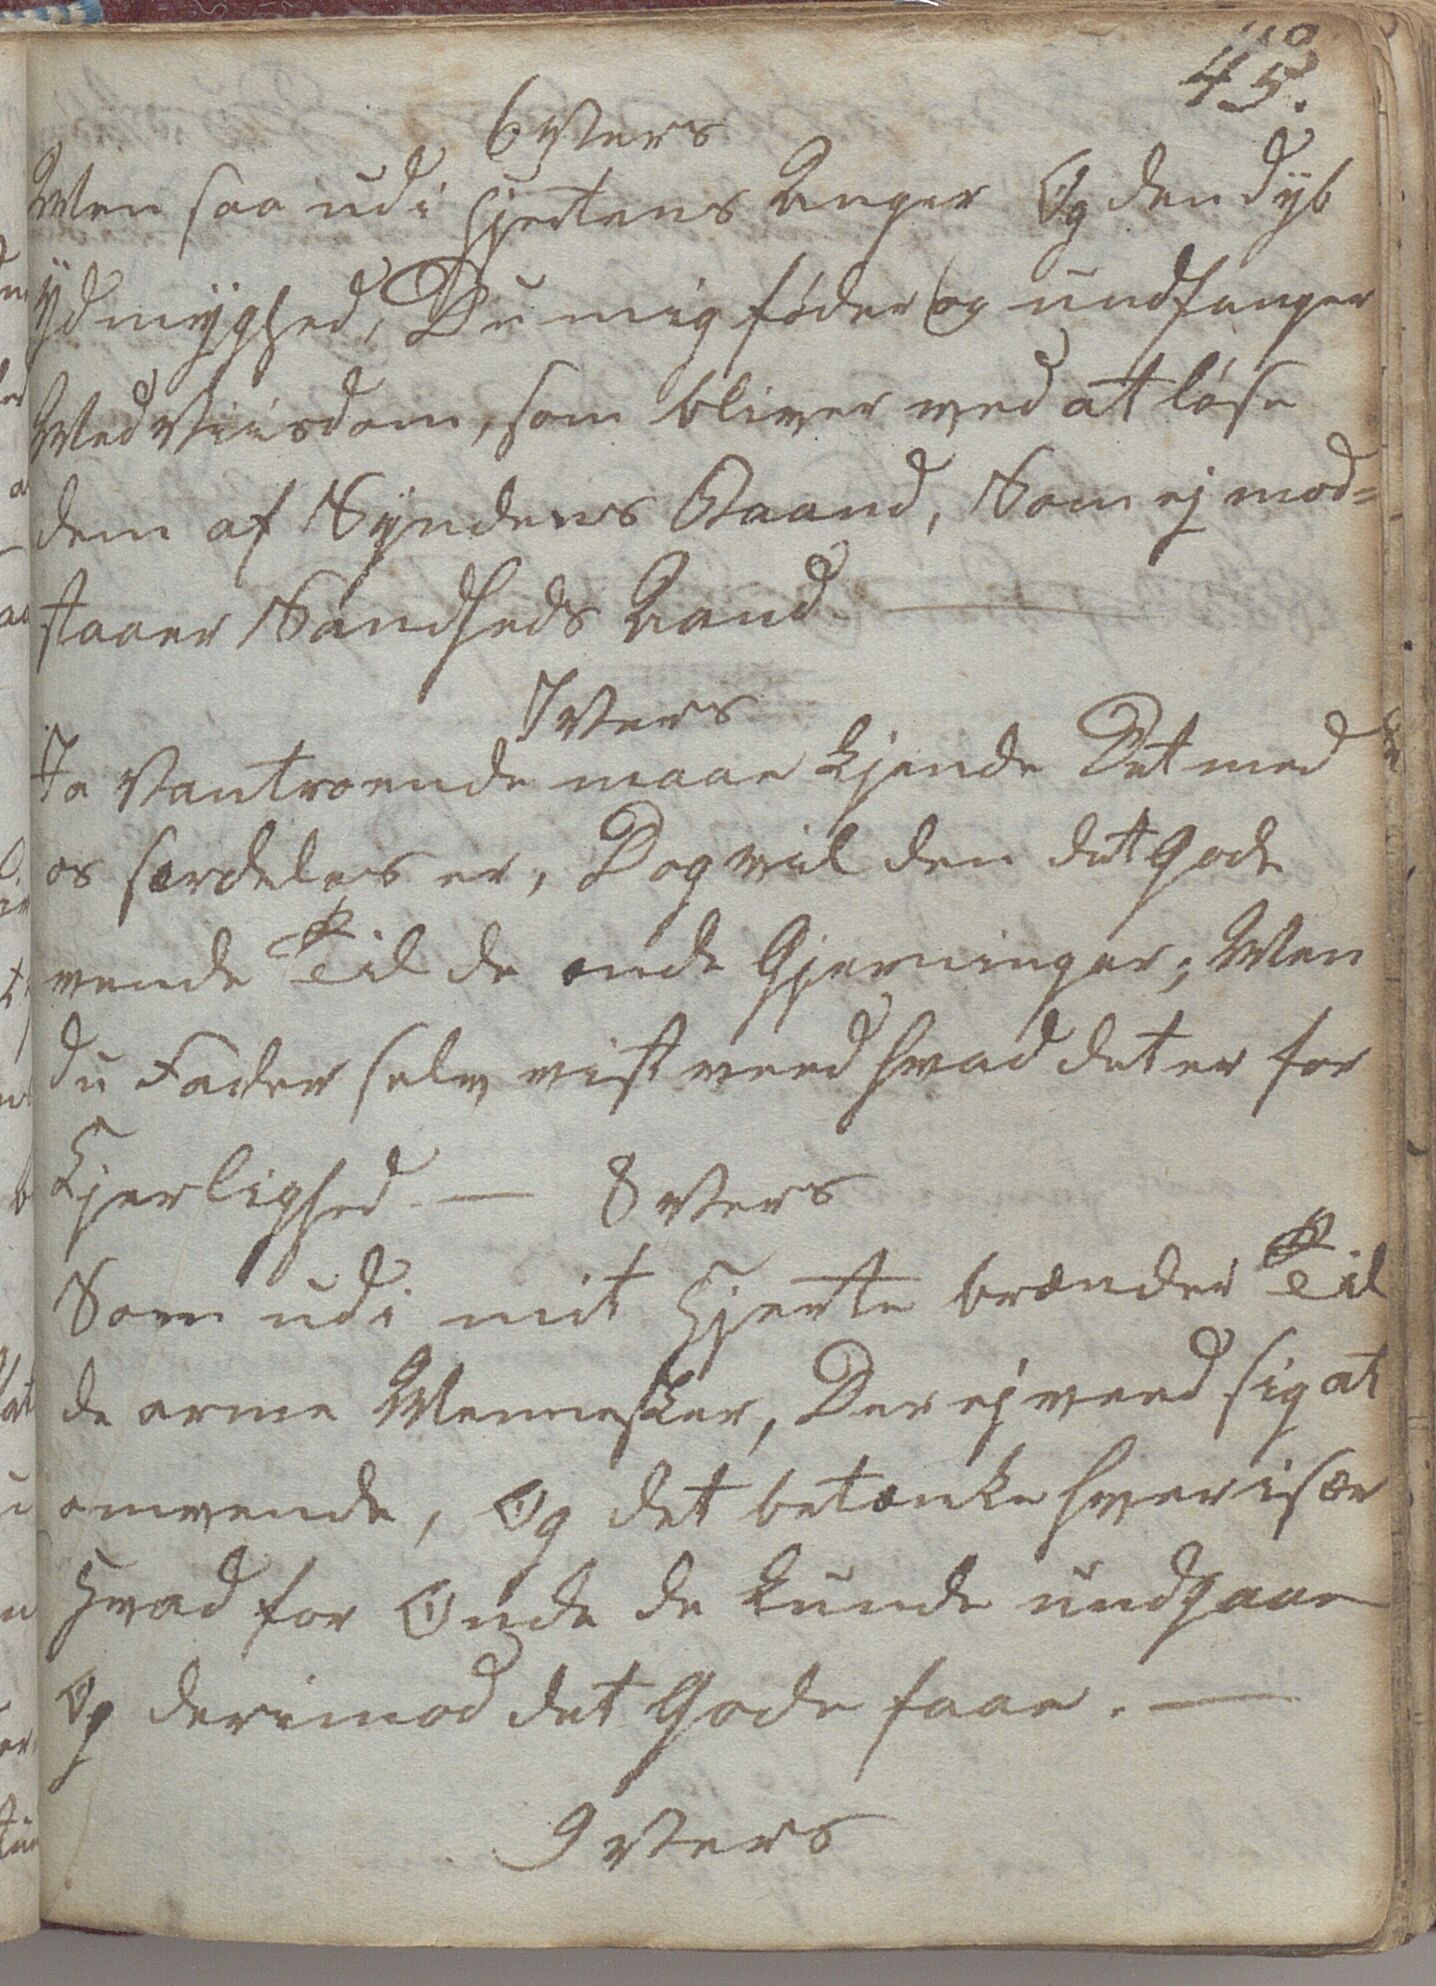 45.
6 Vers
Men saa udi Hjertens Anger Og den dÿb
Ÿdmÿghed, Du mig føder og undfanger
Med Viisdom, som bliver ved at løse
dem af Sÿndens Baand, Som ej mod=
staaer Sandheds Aand ———
7 Vers
Ja Vantroende maae kjende Det med
os særdeles er, Dog vil den det Gode
vende Til de onde Gjerninger; Men
du Fader selv vist veed hvad det er for
Kjerlighed — 8 Vers
Som udi mit Hjerte brænder Til
de arme Mennesker, Der ej veed sig at
omvende, Og det betænke hver især
Hvad for Onde de kunde undgaae
Og derimod det Gode faae. —
9 Vers